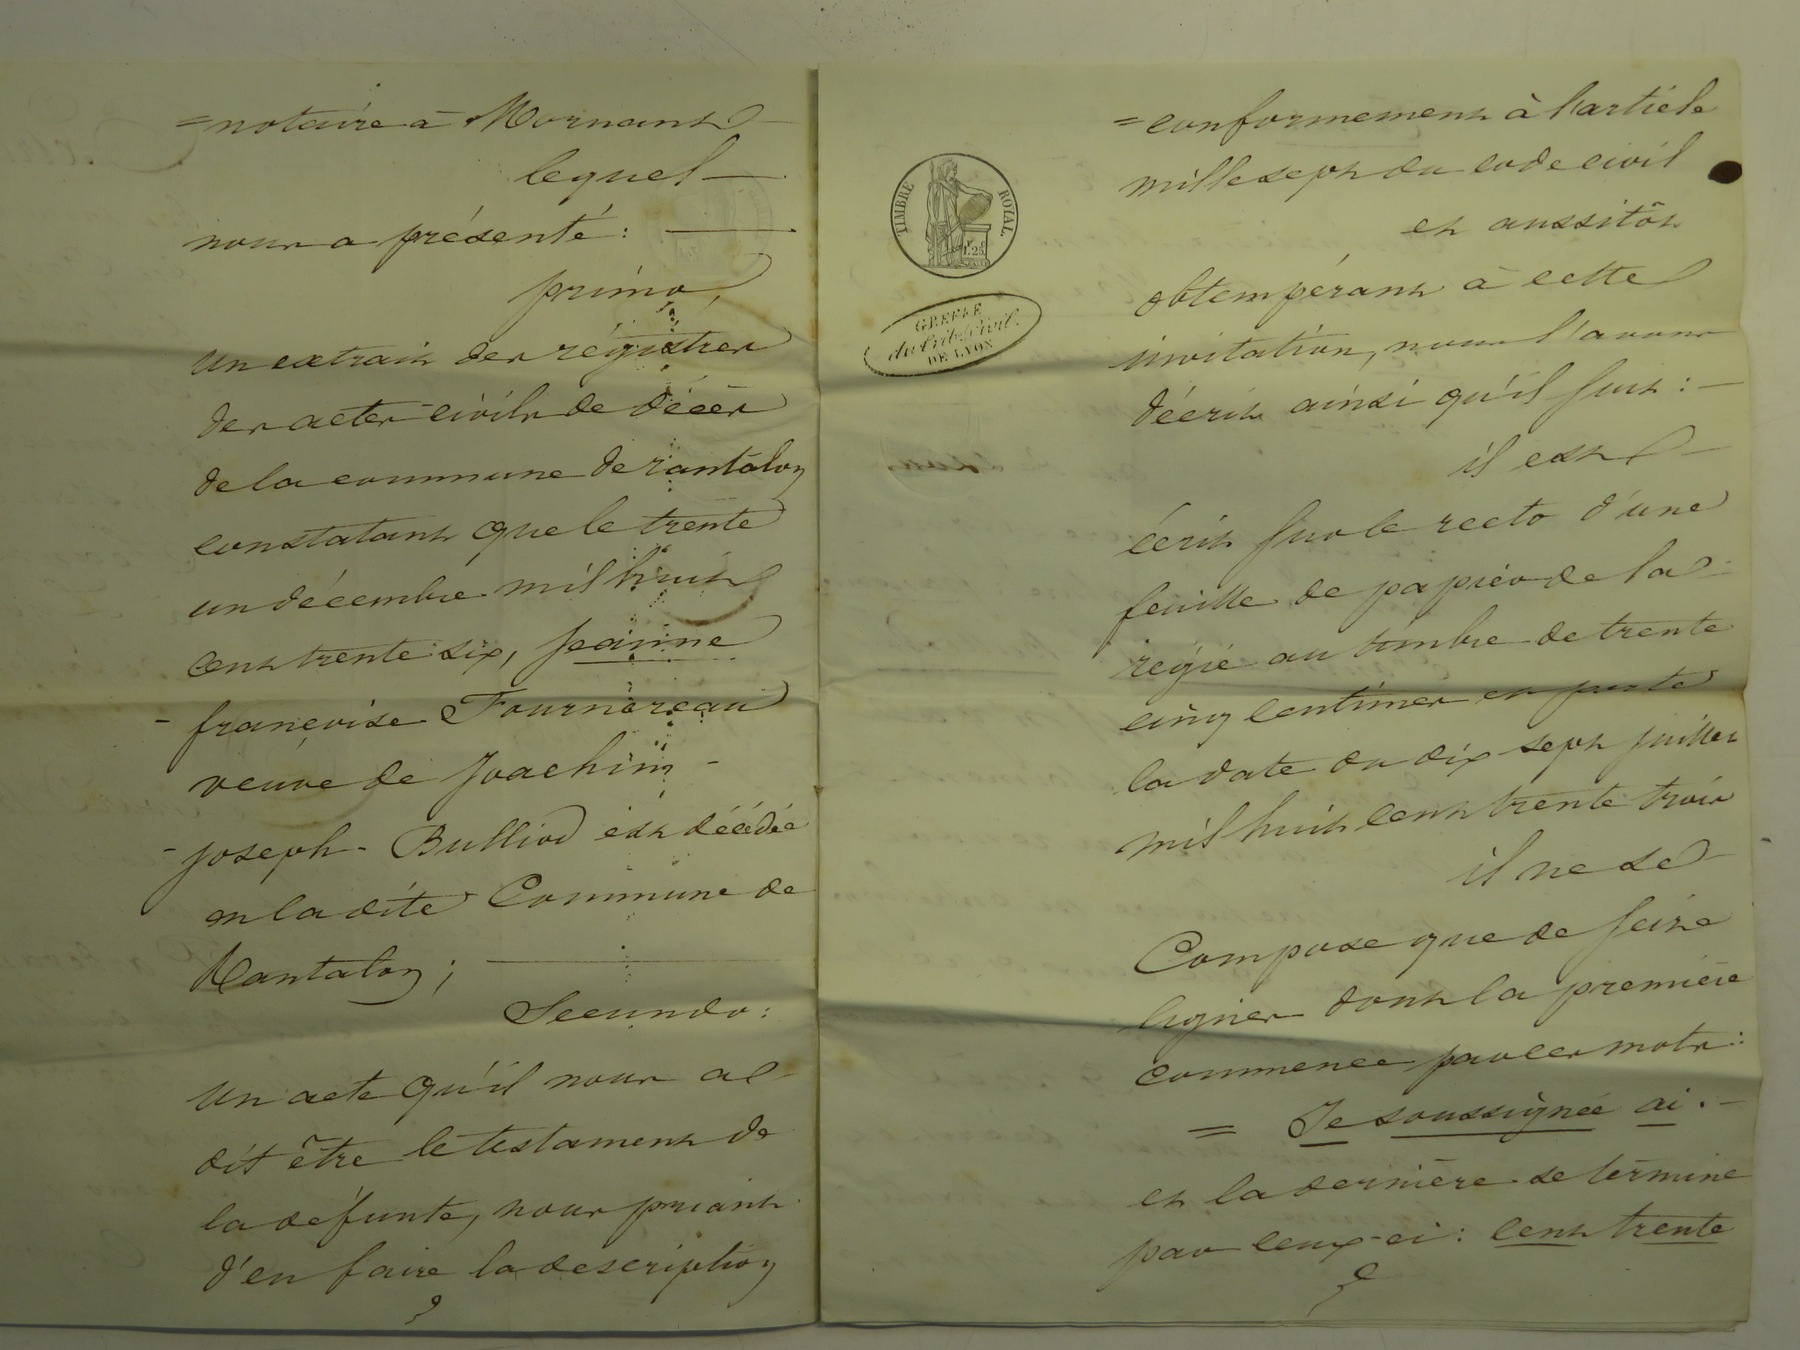 = notaire à Mornant
lequel
nous a présenté :
primo,
un extrait des régistres
des actes civils de décès
de la commune de rantalon
constatant que le trente
un décembre mil huit
cent trente six, jeanne
françoise Fournereau
veuve de Joachim
joseph Bulliod est décédée
en la dite Commune de
Rantalon ;
Secundo :
un acte qu'il nous a
dit être le testament de
la défunte, nous priant
d'en faire la description
TIMBRE ROYAL
1. 25
GREFFE
du Trib. Civil.
DE LYON
= conformement à l'article
mille sept du code civil
et aussitôt
obtempérant à cette
invitation, nous l'avons
décrit ainsi qu'il suit :
il est
écrit sur le recto d'une
feuille de papier de la
régie au timbre de trente
cinq centimes et porte
la date du dix sept juillet
mil huit cent trente trois
il ne se
Compose que de seize
lignes dont la première
commence par ces mots :
= Je soussignée ai .
et la dernière se termine
par ceux-ci : cent trente